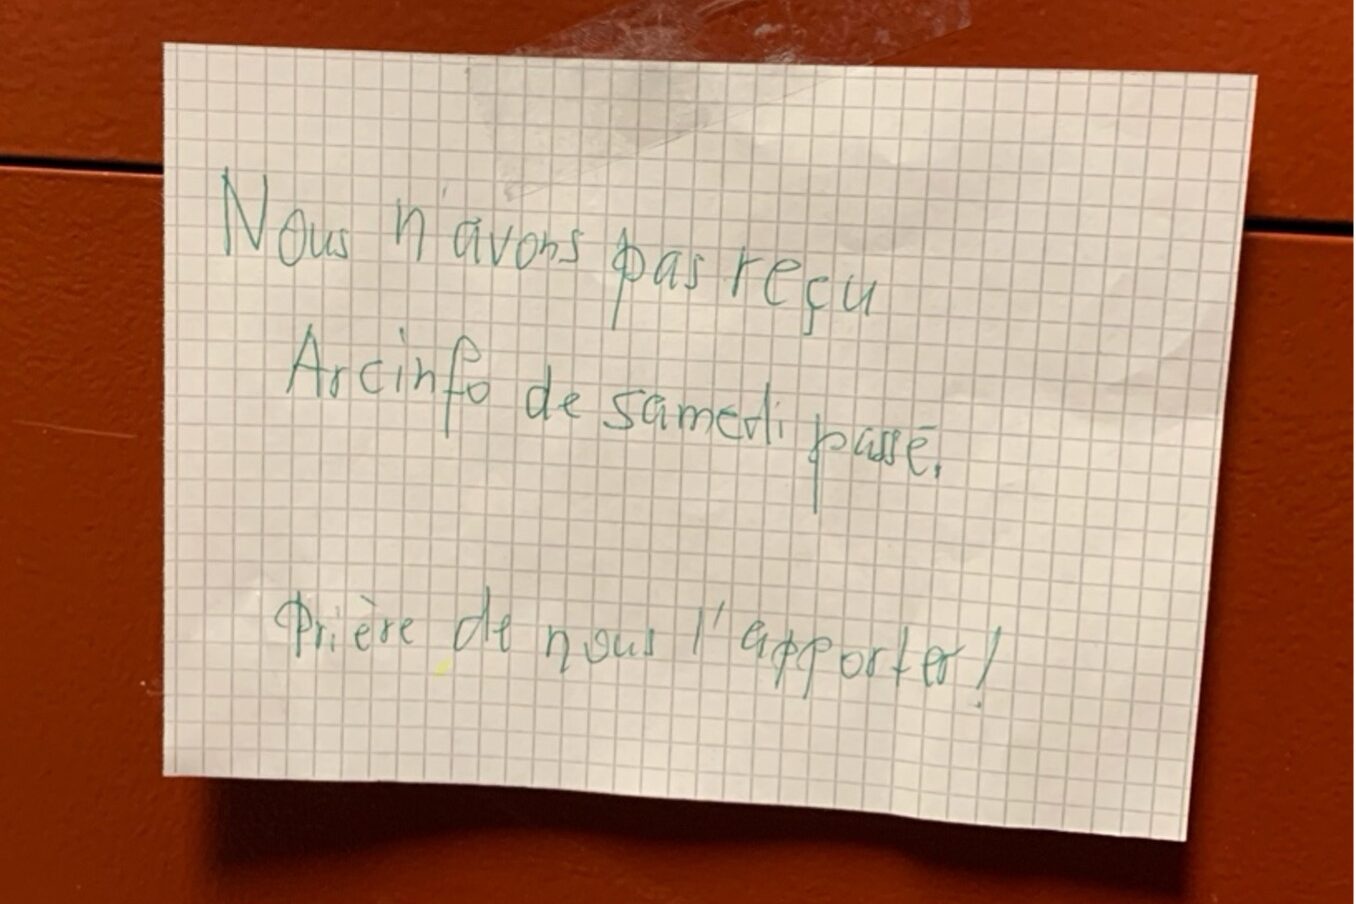 Nous n'avons pas reçu
Arcinfo de samedi passé.
Prière de nous l'apporter!